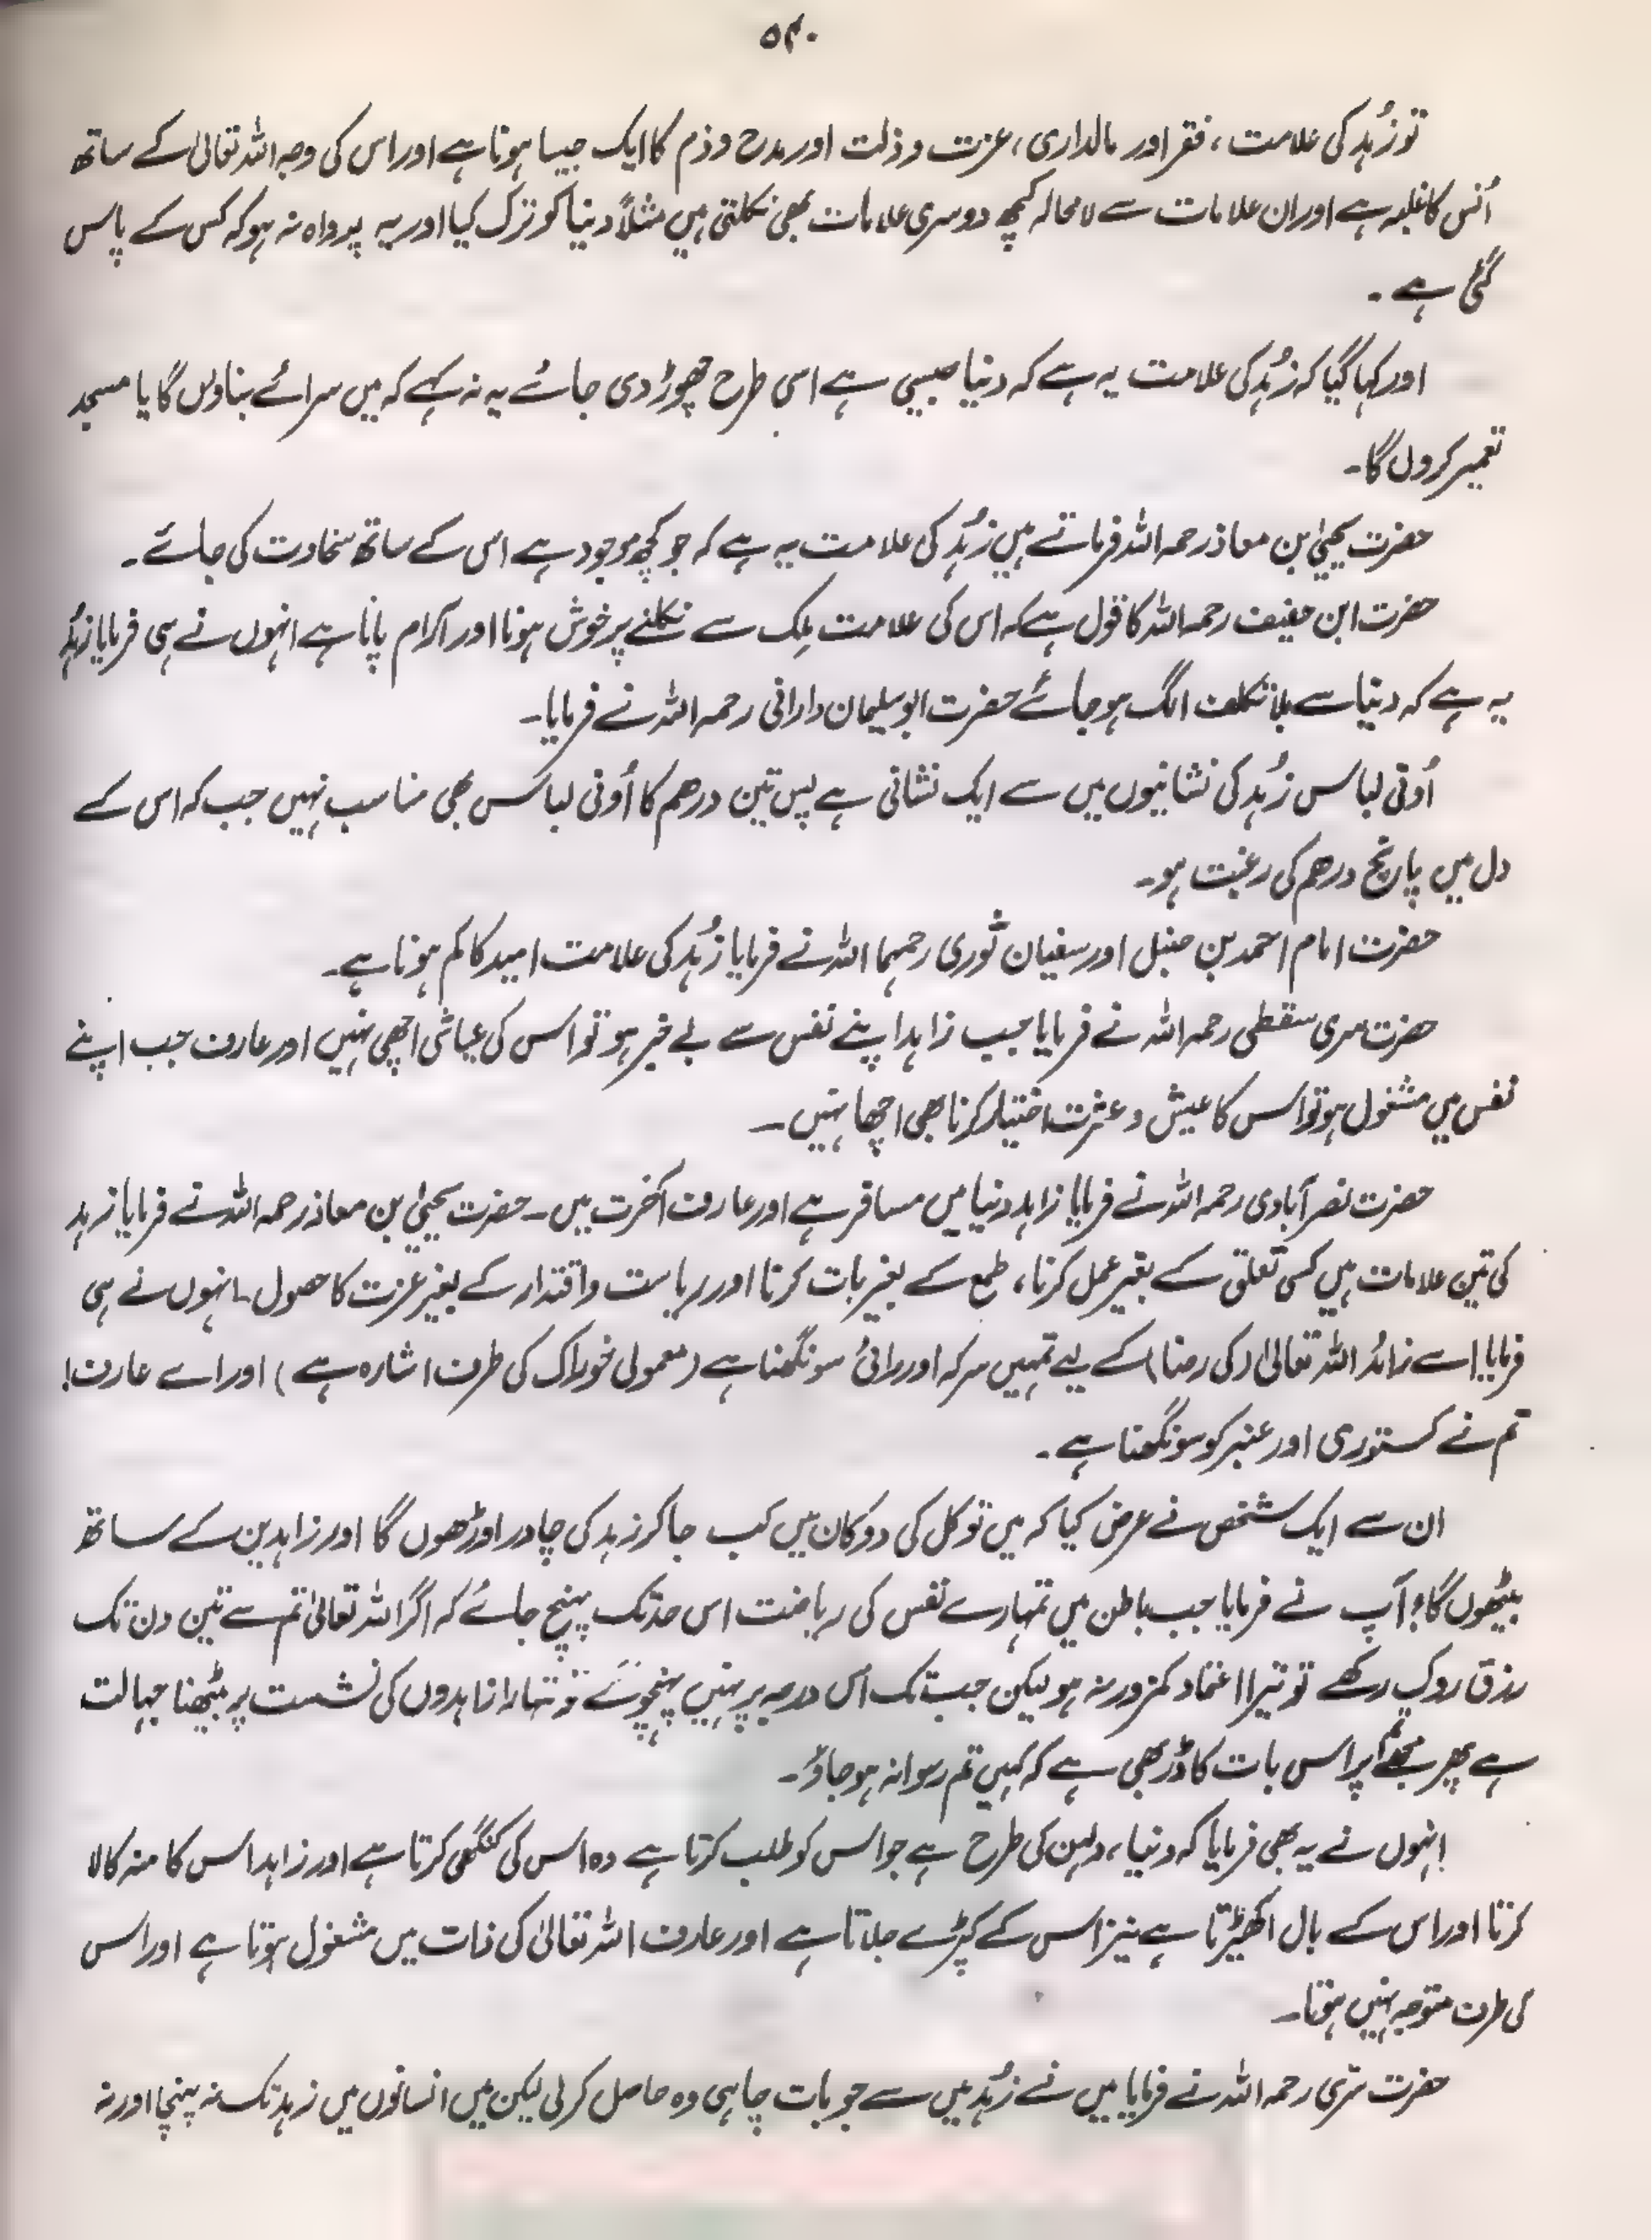 ۵۴۰
تو زُہد کی علامت، فقر اور مالداری، عزت و ذلت اور مدح و ذم کا ایک جیسا ہونا ہے اور اس کی وجہ اللہ تعالیٰ کے ساتھ
اُنس کا غلبہ ہے اور ان علامات سے لامحالہ کچھ دوسری علامات بھی نکلتی ہیں مثلاً دنیا کو ترک کیا اور یہ پرواہ نہ ہو کہ کس کے پاس
گئی ہے۔
اور کہا گیا کہ زُہد کی علامت یہ ہے کہ دنیا جیسی ہے اسی طرح چھوڑ دی جائے یہ نہ کہے کہ میں سرائے بناؤں گا یا مسجد
تعمیر کروں گا۔
حضرت یحییٰ بن معاذ رحمہ اللہ فرماتے ہیں زُہد کی علامت یہ ہے کہ جو کچھ موجود ہے اس کے ساتھ سخاوت کی جائے۔
حضرت ابن خفیف رحمہ اللہ کا قول ہے کہ اس کی علامت مِلک سے نکلنے پر خوش ہونا اور آرام پانا ہے انہوں نے ہی فرمایا زُہد
یہ ہے کہ دنیا سے بلا تکلف الگ ہو جائے حضرت ابو سلیمان دارانی رحمہ اللہ نے فرمایا۔
اُونی لباس زُہد کی نشانیوں میں سے ایک نشانی ہے پس تین درھم کا اُونی لباس بھی مناسب نہیں جب کہ اس کے
دل میں پانچ درھم کی رغبت ہو۔
حضرت امام احمد بن حنبل اور سفیان ثوری رحمہما اللہ نے فرمایا زُہد کی علامت امید کا کم ہونا ہے۔
حضرت سری سقطی رحمہ اللہ نے فرمایا جب زاہد اپنے نفس سے بے خبر ہو تو اس کی عیاشی اچھی نہیں اور عارف جب اپنے
نفس میں مشغول ہو تو اس کا عیش و عشرت اختیار کرنا بھی اچھا نہیں۔
حضرت نصر آبادی رحمہ اللہ نے فرمایا زاہد دنیا میں مسافر ہے اور عارف آخرت میں۔ حضرت یحییٰ بن معاذ رحمہ اللہ نے فرمایا زہد
کی تین علامات ہیں کسی تعلق کے بغیر عمل کرنا، طمع کے بغیر بات کرنا اور ریاست و اقتدار کے بغیر عزت کا حصول۔ انہوں نے ہی
فرمایا اے زاہد! اللہ تعالیٰ (کی رضا) کے لیے تمہیں سرکہ اور رائی سونگھنا ہے (معمولی خوراک کی طرف اشارہ ہے) اور اے عارف!
تم نے کستوری اور عنبر کو سونگھنا ہے۔
ان سے ایک شخص نے عرض کیا کہ میں توکل کی دوکان میں کب جا کر زہد کی چادر اوڑھوں گا اور زاہدین کے ساتھ
بیٹھوں گا؟ آپ نے فرمایا جب باطن میں تمہارے نفس کی ریاضت اس حد تک پہنچ جائے کہ اگر اللہ تعالیٰ تم سے تین دن تک
رزق روک رکھے تو تیرا اعتماد کمزور نہ ہو لیکن جب تک اس درجہ پر نہیں پہنچو گے تو تمہارا زاہدوں کی نشست پر بیٹھنا جہالت
ہے پھر مجھے تم پر اس بات کا ڈر بھی ہے کہ کہیں تم رسوا نہ ہو جاؤ۔
انہوں نے یہ بھی فرمایا کہ دنیا، دلہن کی طرح ہے جو اس کو طلب کرتا ہے وہ اس کی کنگھی کرتا ہے اور زاہد اس کا منہ کالا
کرتا اور اس کے بال اکھیڑتا ہے نیز اس کے کپڑے جلاتا ہے اور عارف اللہ تعالیٰ کی ذات میں مشغول ہوتا ہے اور اس
کی طرف متوجہ نہیں ہوتا۔
حضرت سرّی رحمہ اللہ نے فرمایا میں نے زُہد میں سے جو بات چاہی وہ حاصل کر لی لیکن میں انسانوں میں زہد تک نہ پہنچا اور نہ